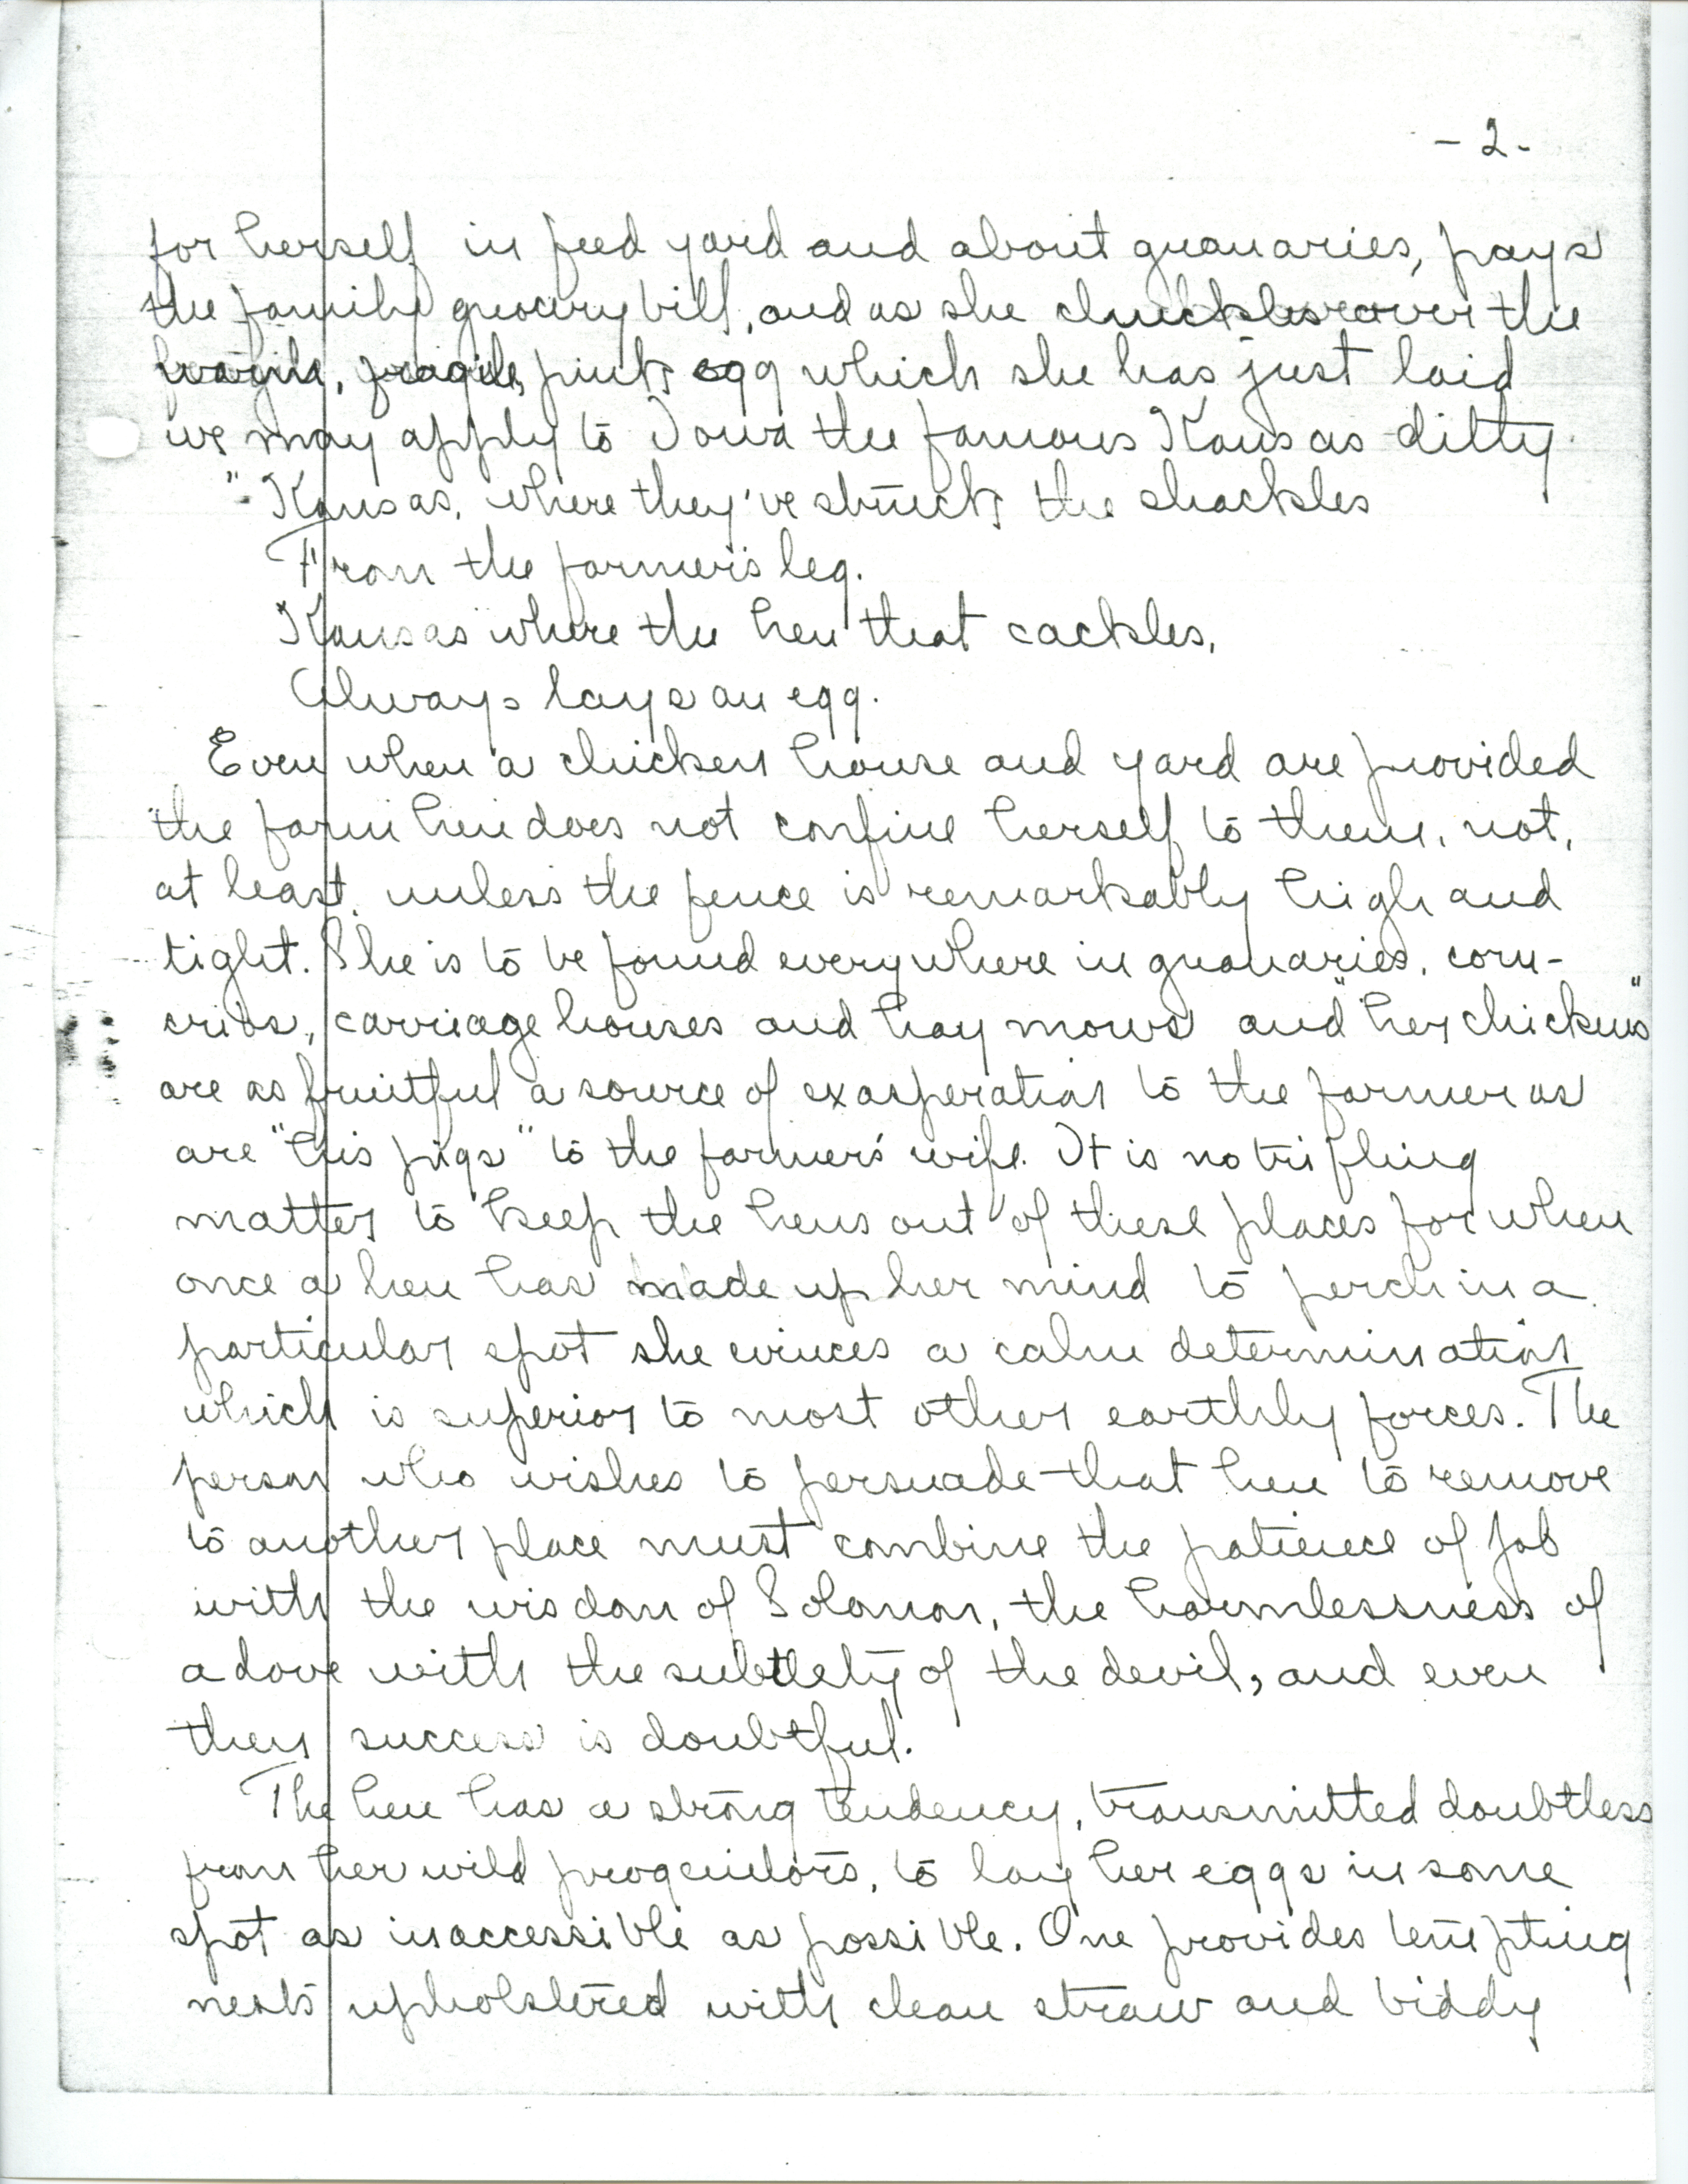 - 2 -
for herself in feed yard and about granaries, pays
the family grocery bill, and as she chuckles over the
warm, fragile, pink egg which she has just laid
we may apply to Iowa the famous Kansas ditty.
"Kansas, where they've struck the shackles
From the farmer's leg.
Kansas where the hen that cackles,
Always lays an egg.
Even when a chicken house and yard are provided
the farm hen does not confine herself to them, not,
at least, unless the fence is remarkably high and
tight. She is to be found everywhere in granaries, corn-
cribs, carriage houses and hay mows and "her chickens"
are as fruitful a source of exasperation to the farmer as
are "his pigs" to the farmer's wife. It is no trifling
matter to keep the hens out of these places for when
once a hen has made up her mind to perch in a
particular spot she evinces a calm determination
which is superior to most other earthly forces. The
person who wishes to persuade that hen to remove
to another place must combine the patience of Job
with the wisdom of Solomon, the harmlessness of
a dove with the subtlety of the devil, and even
then success is doubtful.
The hen has a strong tendency, transmitted doubtless
from her wild progenitors, to lay her eggs in some
spot as inaccessible as possible. One provides tempting
nests upholstered with clean straw and biddy